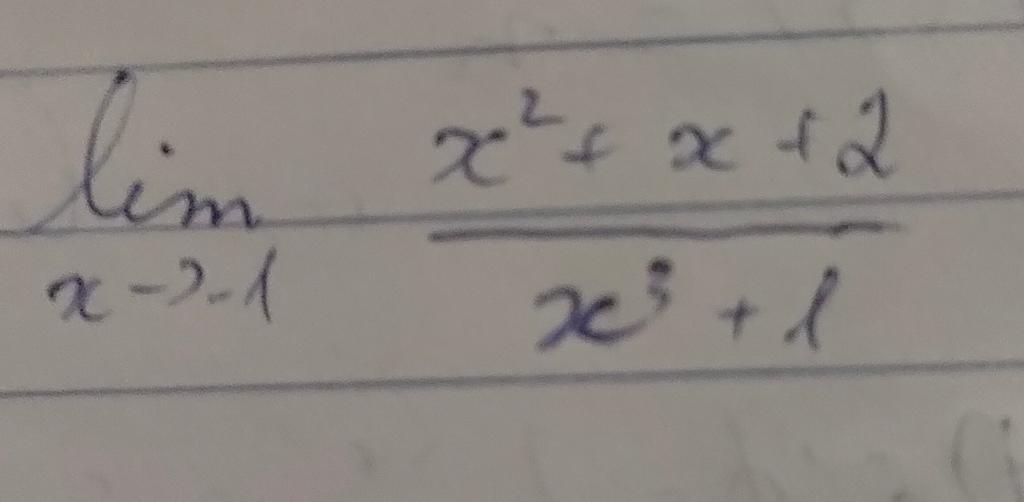 lim x→-1 (x² + x + 2)/(x³ + 1)